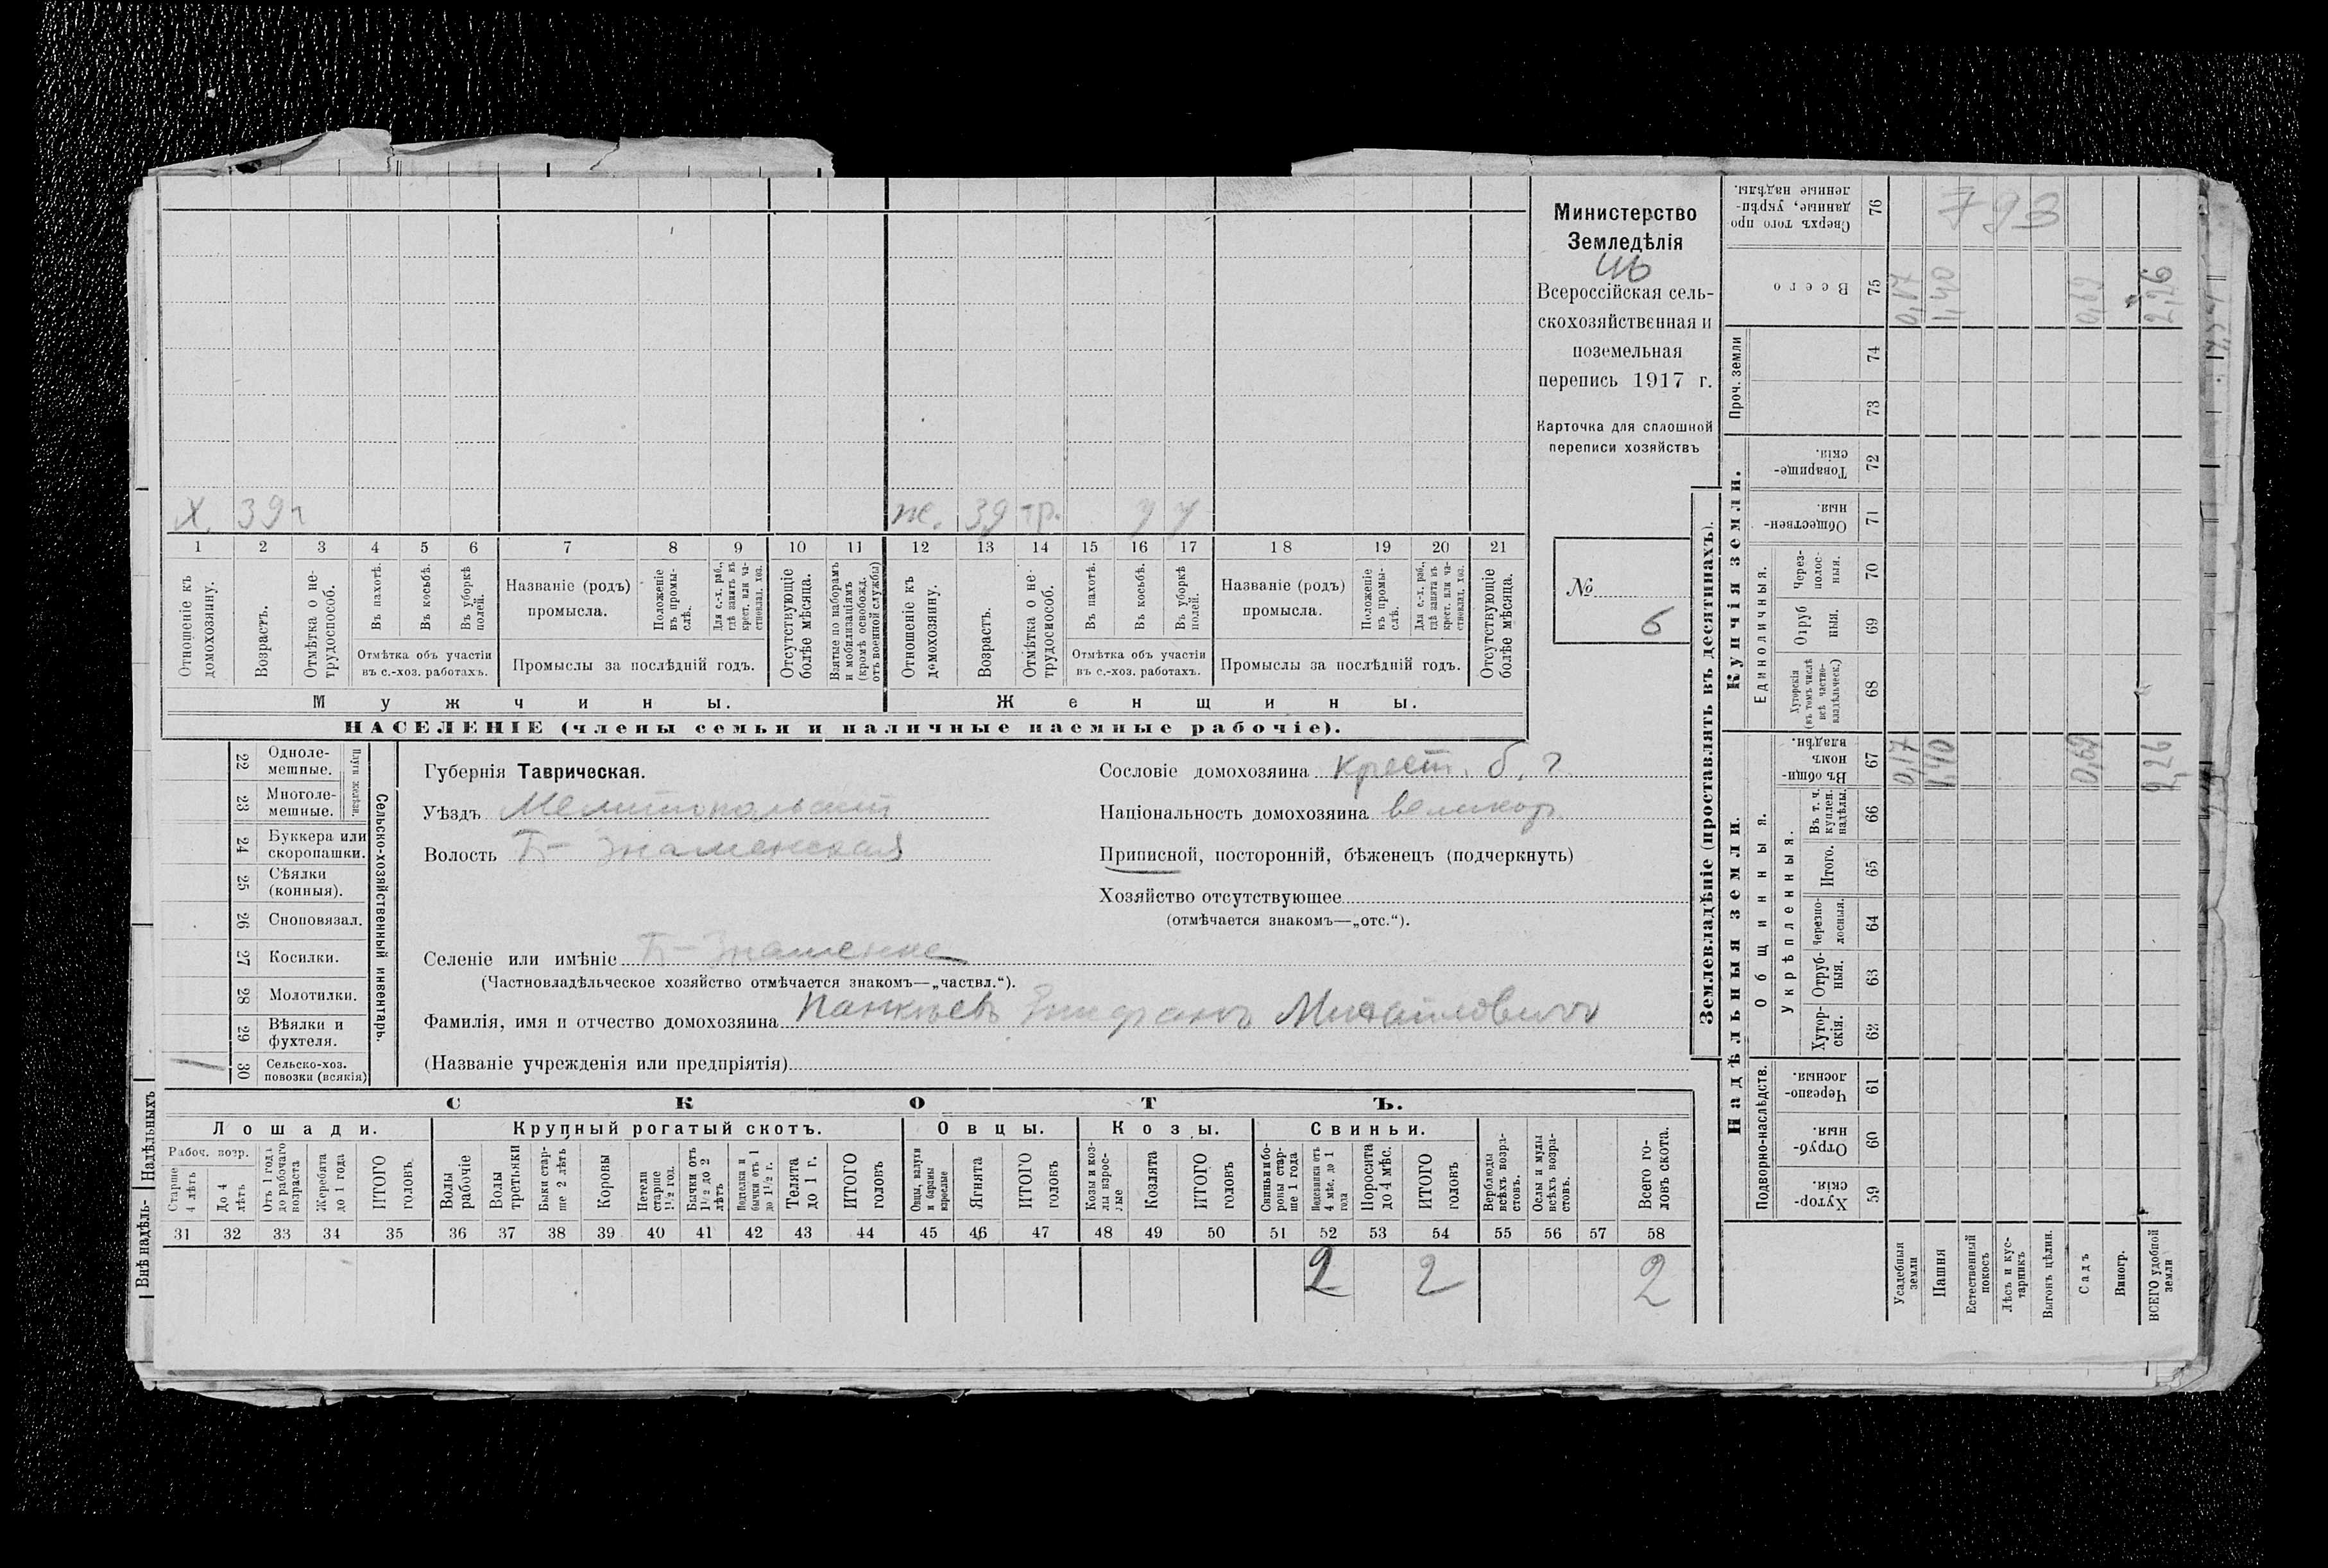 Министерство
Земледѣлія
Всероссійская сель-
скохозяйственная и
поземельная
перепись 1917 г.
Карточка для сплошной
переписи хозяйствъ
№
6
Х. 39
ж. 39 гр. у у
1 2 3 4 5 6 7 8 9 10 11 12 13 14 15 16 17 18 19 20 21
Отношеніе къ домохозяину.
Возрастъ.
Отмѣтка о не-трудоспособ.
Въ пахотѣ.
Въ косьбѣ.
Въ уборкѣ полей.
Отмѣтка объ участіи
въ с.-хоз. работахъ.
Названіе (родъ)
промысла.
Положеніе въ промы-слѣ.
Для с.-х. раб., гдѣ занятъ въ крест. или ча-стновлад. хоз.
Промыслы за послѣдній годъ.
Отсутствующіе болѣе мѣсяца.
Взятые по наборамъ и мобилизаціямъ (кромѣ освобожд. отъ военной службы)
Отношеніе къ домохозяину.
Возрастъ.
Отмѣтка о не-трудоспособ.
Въ пахотѣ.
Въ косьбѣ.
Въ уборкѣ полей.
Отмѣтка объ участіи
въ с.-хоз. работахъ.
Названіе (родъ)
промысла.
Положеніе въ промы-слѣ.
Для с.-х. раб., гдѣ занятъ въ крест. или ча-стновлад. хоз.
Промыслы за послѣдній годъ.
Отсутствующіе болѣе мѣсяца.
Мужчины.
Женщины.
НАСЕЛЕНІЕ (члены семьи и наличные наемные рабочіе).
22 Одноле-мешные.
23 Многоле-мешные.
Плуги желѣзн.
24 Буккера или скоропашки.
25 Сѣялки (конныя).
26 Сноповязал.
27 Косилки.
28 Молотилки.
29 Вѣялки и фухтеля.
1 30 Сельско-хоз. повозки (всякія)
Сельско-хозяйственный инвентарь.
Губернія Таврическая.
Уѣздъ Мелитопольскій
Волость Б-Знаменская
Селеніе или имѣніе Б-Знаменка
(Частновладѣльческое хозяйство отмѣчается знакомъ—„частвл.“).
Фамилія, имя и отчество домохозяина Панкѣевъ Епифанъ Михайловичъ
(Названіе учрежденія или предпріятія)
Сословіе домохозяина крест. б. г.
Національность домохозяина великор.
Приписной, посторонній, бѣженецъ (подчеркнуть)
Хозяйство отсутствующее
(отмѣчается знакомъ—„отс.“).
Надѣльныхъ
Внѣ надѣль-
СКОТЪ.
Лошади.
Крупный рогатый скотъ.
Овцы.
Козы.
Свиньи.
Рабоч. возр.
Старше 4 лѣтъ
До 4 лѣтъ
Отъ 1 года до рабочаго возраста
Жеребята до 1 года
ИТОГО головъ.
Волы рабочіе
Волы третьяки
Быки стар-ше 2 лѣтъ
Коровы
Нетели старше 1½ год.
Бычки отъ 1½ до 2 лѣтъ
Телки и бычки отъ 1 до 1½ г.
Телята до 1 г.
ИТОГО головъ
Овцы, валухи и бараны взрослые
Ягнята
ИТОГО головъ
Козы и коз-лы взрос-лые
Козлята
ИТОГО головъ
Свиньи и бо-ровы стар-ше 1 года
Подсвинки отъ 4 мѣс. до 1 года
Поросята до 4 мѣс.
ИТОГО головъ
Верблюды всѣхъ возра-стовъ.
Ослы и мулы всѣхъ возра-стовъ.
Всего го-ловъ скота.
31 32 33 34 35 36 37 38 39 40 41 42 43 44 45 46 47 48 49 50 51 52 53 54 55 56 57 58
2 2 2
Землевладѣніе (проставлять въ десятинахъ).
Сверхъ того про данные, укрѣп-ленные надѣлы. 76 793
Всего 75 0,17 1,40 0,69 2,26
Проч. земли
74
73
Купчія земли.
Товарище-скія. 72
Обществен-ныя. 71
Единоличныя.
Через-полос-ныя. 70
Отруб ныя. 69
Хуторскія (въ томъ числѣ всѣ частно-владѣльческ.) 68
Надѣльныя земли.
Общинныя.
Въ общин-номъ владѣн. 67 0,17 1,40 0,69 2,26
Укрѣпленныя.
Въ т. ч. куплен. надѣлы. 66
Итого. 65
Черезпо-лосныя. 64
Отруб-ныя. 63
Хутор-скія. 62
Подворно-наслѣдств.
Черезпо-лосныя. 61
Отруб-ныя. 60
Хутор-скія. 59
Усадебныя земли
Пашня
Естественный покосъ
Лѣсъ и кус-тарникъ
Выгонъ цѣлин.
Садъ
Виногр.
ВСЕГО удобной земли